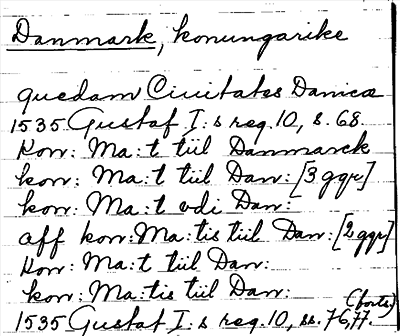 Danmark, konungarike
quedam Ciuitates Danicæ
1535 Gustaf I:s reg. 10, s. 68.
Kon: Ma:t tiil Danmarck
kon: Ma:t tiil Dan: [3 ggr]
kon: Ma:t vdi Dan:
aff kon: Ma:tis tiil Dan: [2 ggr]
Kon: Ma:t tiil Dan:
kon: Ma:tis tiil Dan:
(forts)
1535 Gustaf I:s reg. 10, ss. 76, 77.